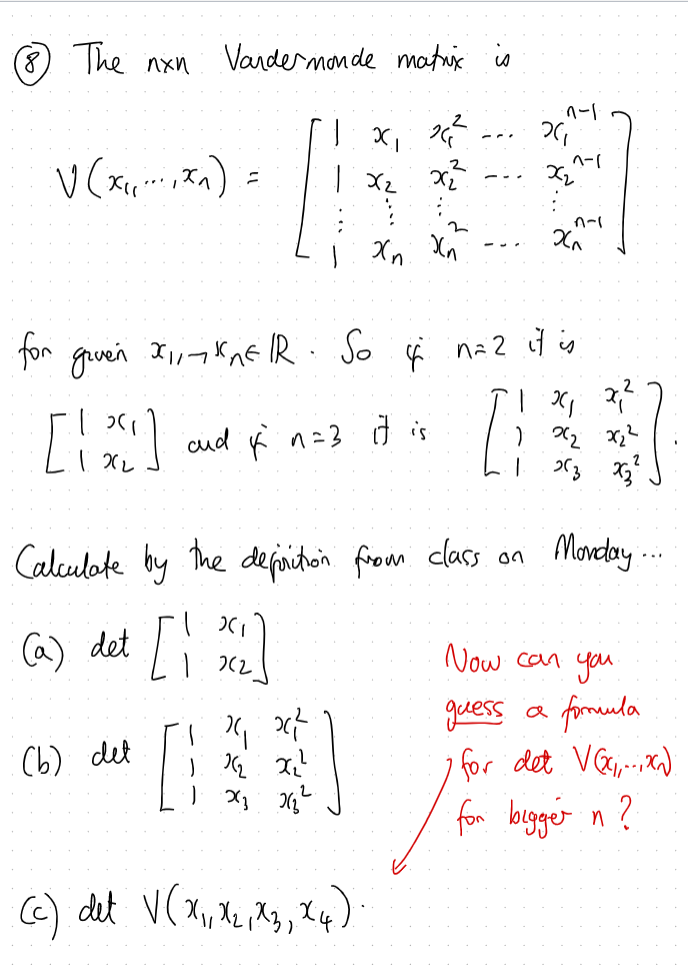 ⑧ The nxn Vandermonde matrix is
V(x₁,...,xₙ) = [ 1 x₁ x₁² --- x₁ⁿ⁻¹
1 x₂ x₂² --- x₂ⁿ⁻¹
⋮ ⋮ ⋮ ⋮
1 xₙ xₙ² --- xₙⁿ⁻¹ ]
for given x₁,→ xₙ∈ ℝ. So if n=2 it is
[ 1 x₁
1 x₂ ] and if n=3 it is [ 1 x₁ x₁²
1 x₂ x₂²
1 x₃ x₃² ].
Calculate by the definition from class on Monday...
(a) det [ 1 x₁
1 x₂ ]
(b) det [ 1 x₁ x₁²
1 x₂ x₂²
1 x₃ x₃² ]
Now can you
guess a formula
for det V(x₁,...,xₙ)
for bigger n?
(c) det V(x₁,x₂,x₃,x₄).